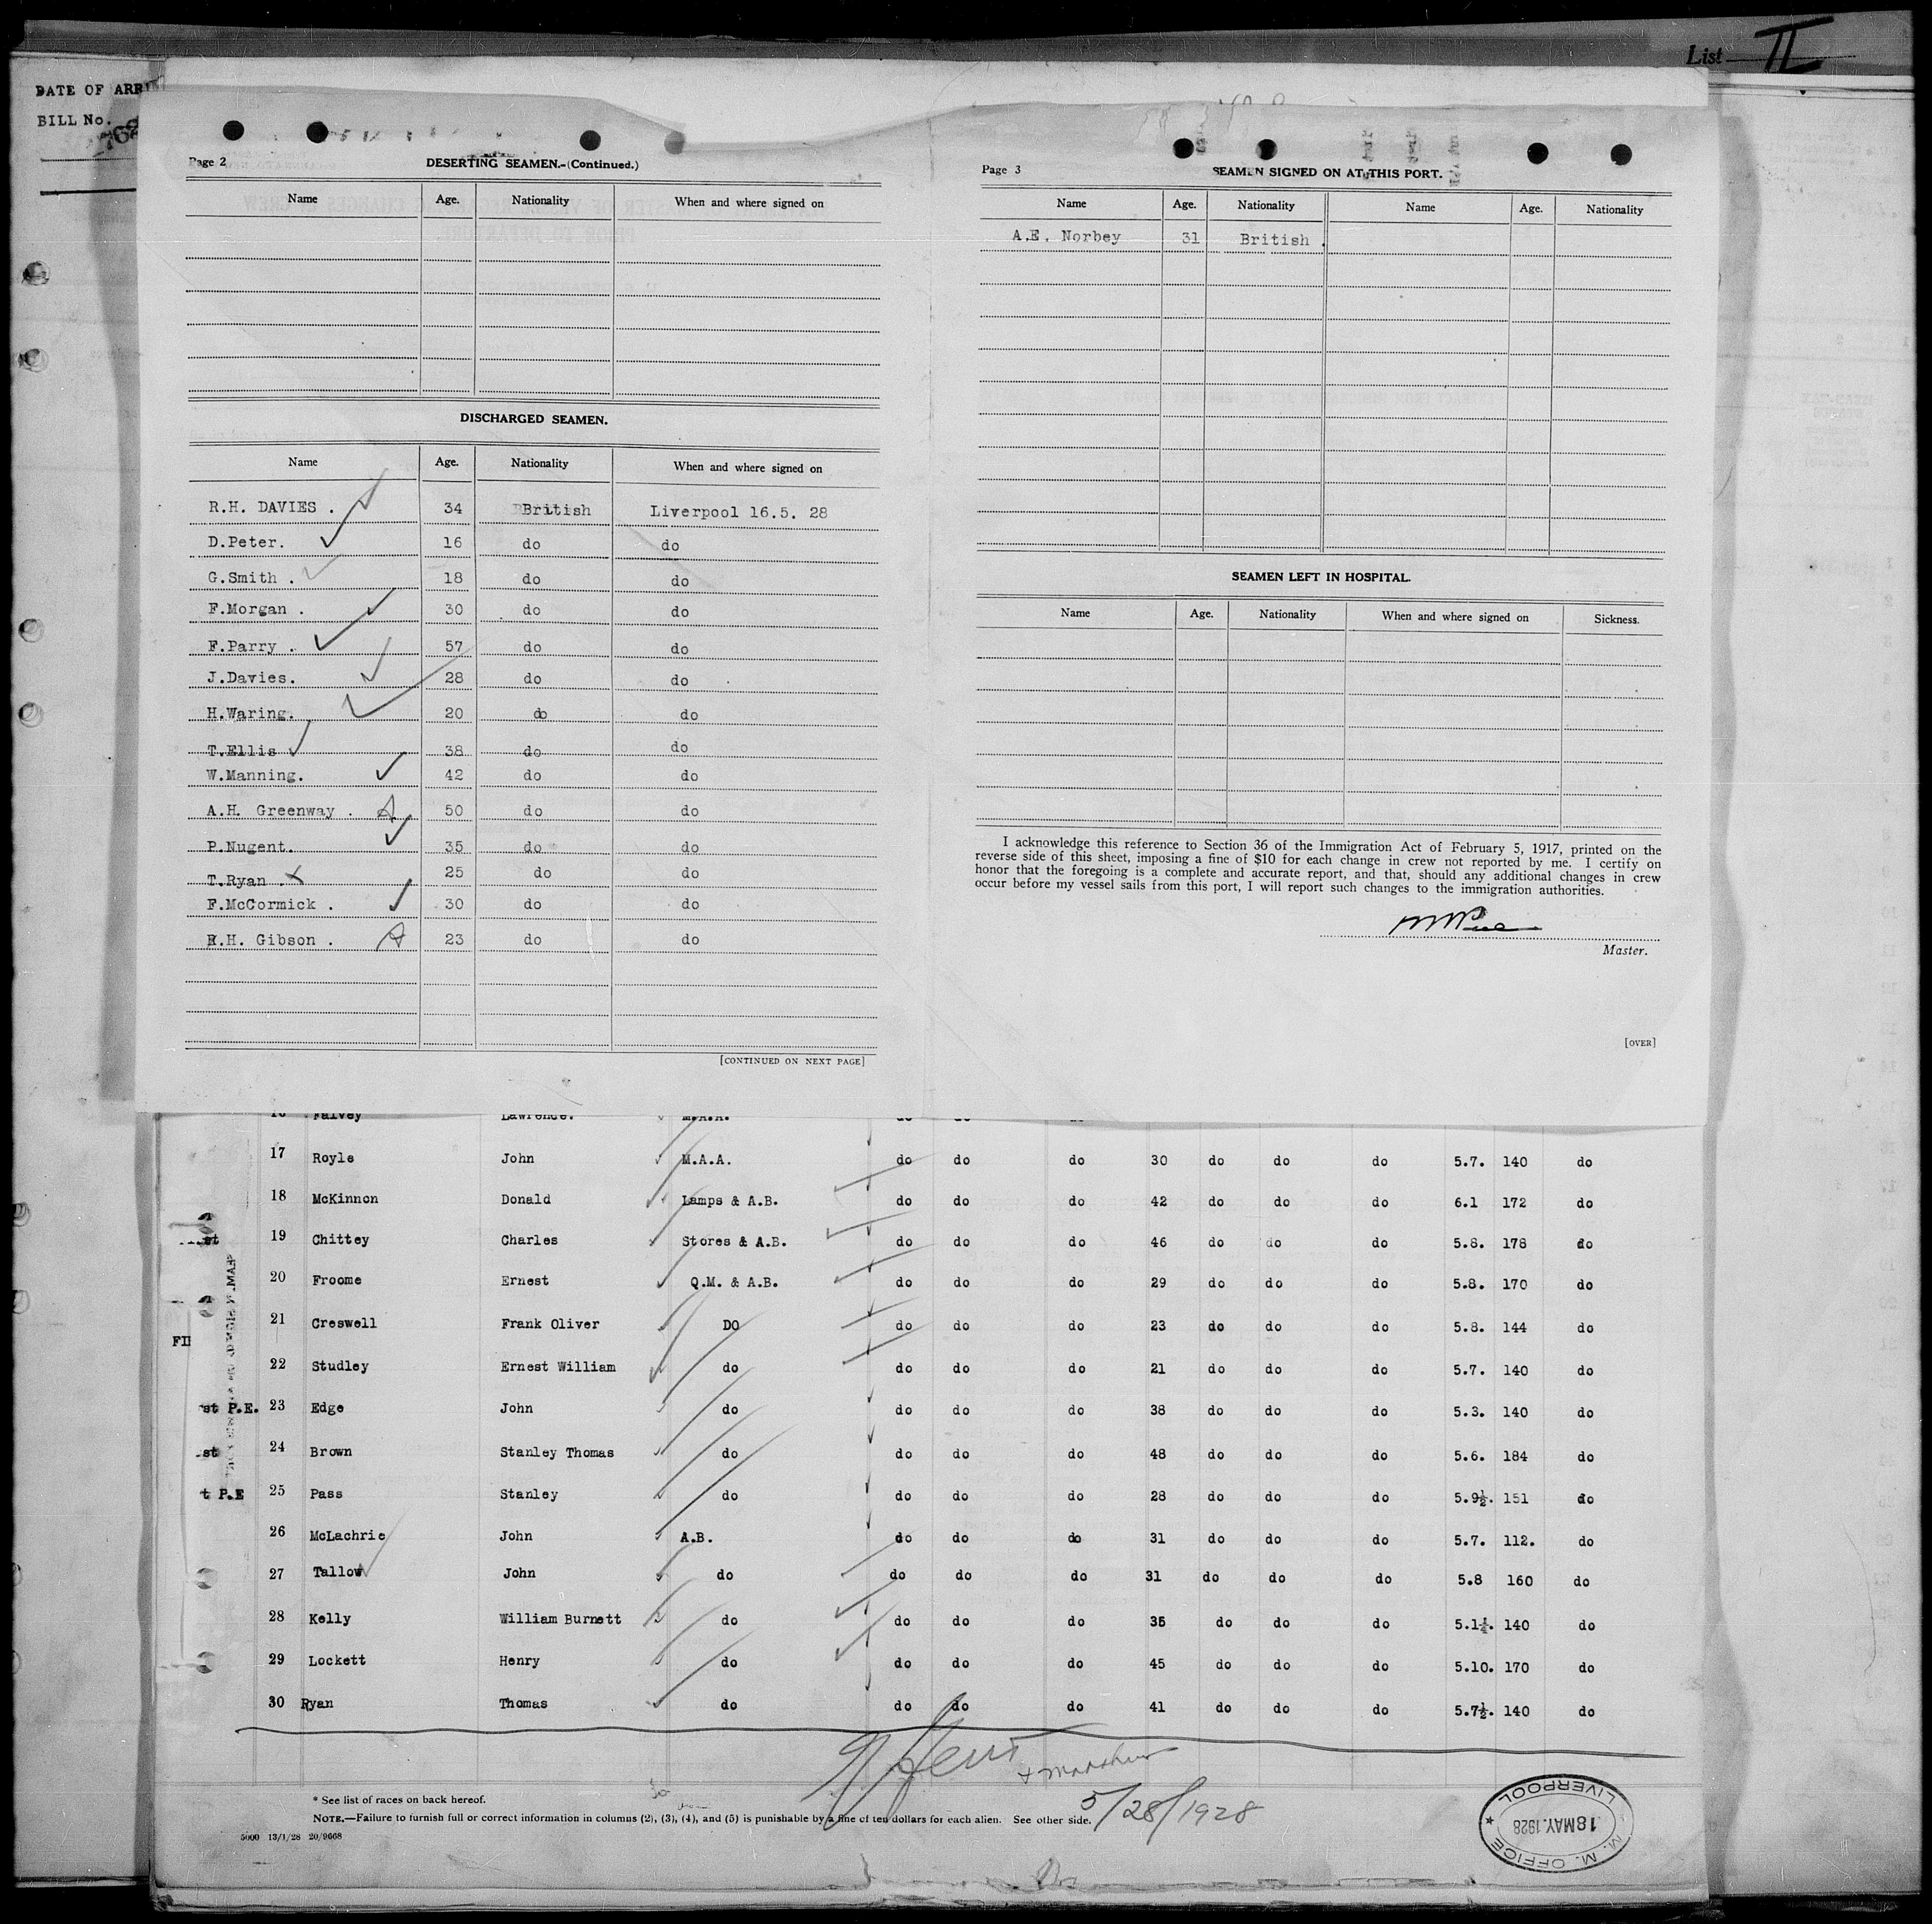 List II
DATE OF ARRI
BILL No.
Page 2
DESERTING SEAMEN.-(Continued.)
Name Age. Nationality When and where signed on
DISCHARGED SEAMEN.
Name Age. Nationality When and where signed on
R.H. DAVIES . 34 British Liverpool 16.5. 28
D.Peter. 16 do do
G.Smith . 18 do do
F.Morgan . 30 do do
F.Parry . 57 do do
J.Davies. 28 do do
H.Waring. 20 do do
T.Ellis 38 do do
W.Manning. 42 do do
A.H. Greenway . 50 do do
P.Nugent. 35 do do
T.Ryan . 25 do do
F.McCormick . 30 do do
E.H. Gibson . 23 do do
[CONTINUED ON NEXT PAGE]
Page 3
SEAMEN SIGNED ON AT THIS PORT.
Name Age. Nationality Name Age. Nationality
A.E. Norbey 31 British .
SEAMEN LEFT IN HOSPITAL.
Name Age. Nationality When and where signed on Sickness.
I acknowledge this reference to Section 36 of the Immigration Act of February 5, 1917, printed on the
reverse side of this sheet, imposing a fine of $10 for each change in crew not reported by me. I certify on
honor that the foregoing is a complete and accurate report, and that, should any additional changes in crew
occur before my vessel sails from this port, I will report such changes to the immigration authorities.
Master.
[OVER]
16 Falvey Lawrence. M.A.A. do do do
17 Royle John M.A.A. do do do 30 do do do 5.7. 140 do
18 McKinnon Donald Lamps & A.B. do do do 42 do do do 6.1 172 do
19 Chittey Charles Stores & A.B. do do do 46 do do do 5.8. 178 do
20 Froome Ernest Q.M. & A.B. do do do 29 do do do 5.8. 170 do
21 Creswell Frank Oliver DO do do do 23 do do do 5.8. 144 do
22 Studley Ernest William do do do do 21 do do do 5.7. 140 do
st P.E. 23 Edge John do do do do 38 do do do 5.3. 140 do
st 24 Brown Stanley Thomas do do do do 48 do do do 5.6. 184 do
t P.E 25 Pass Stanley do do do do 28 do do do 5.9½. 151 do
26 McLachrie John A.B. do do do 31 do do do 5.7. 112. do
27 Tallow John do do do do 31 do do do 5.8 160 do
28 Kelly William Burnett do do do do 35 do do do 5.1½. 140 do
29 Lockett Henry do do do do 45 do do do 5.10. 170 do
30 Ryan Thomas do do do do 41 do do do 5.7½. 140 do
5/28/1928
* See list of races on back hereof.
NOTE.—Failure to furnish full or correct information in columns (2), (3), (4), and (5) is punishable by a fine of ten dollars for each alien. See other side.
5000 13/1/28 20/9668
M. M. OFFICE
18 MAY.1928
LIVERPOOL